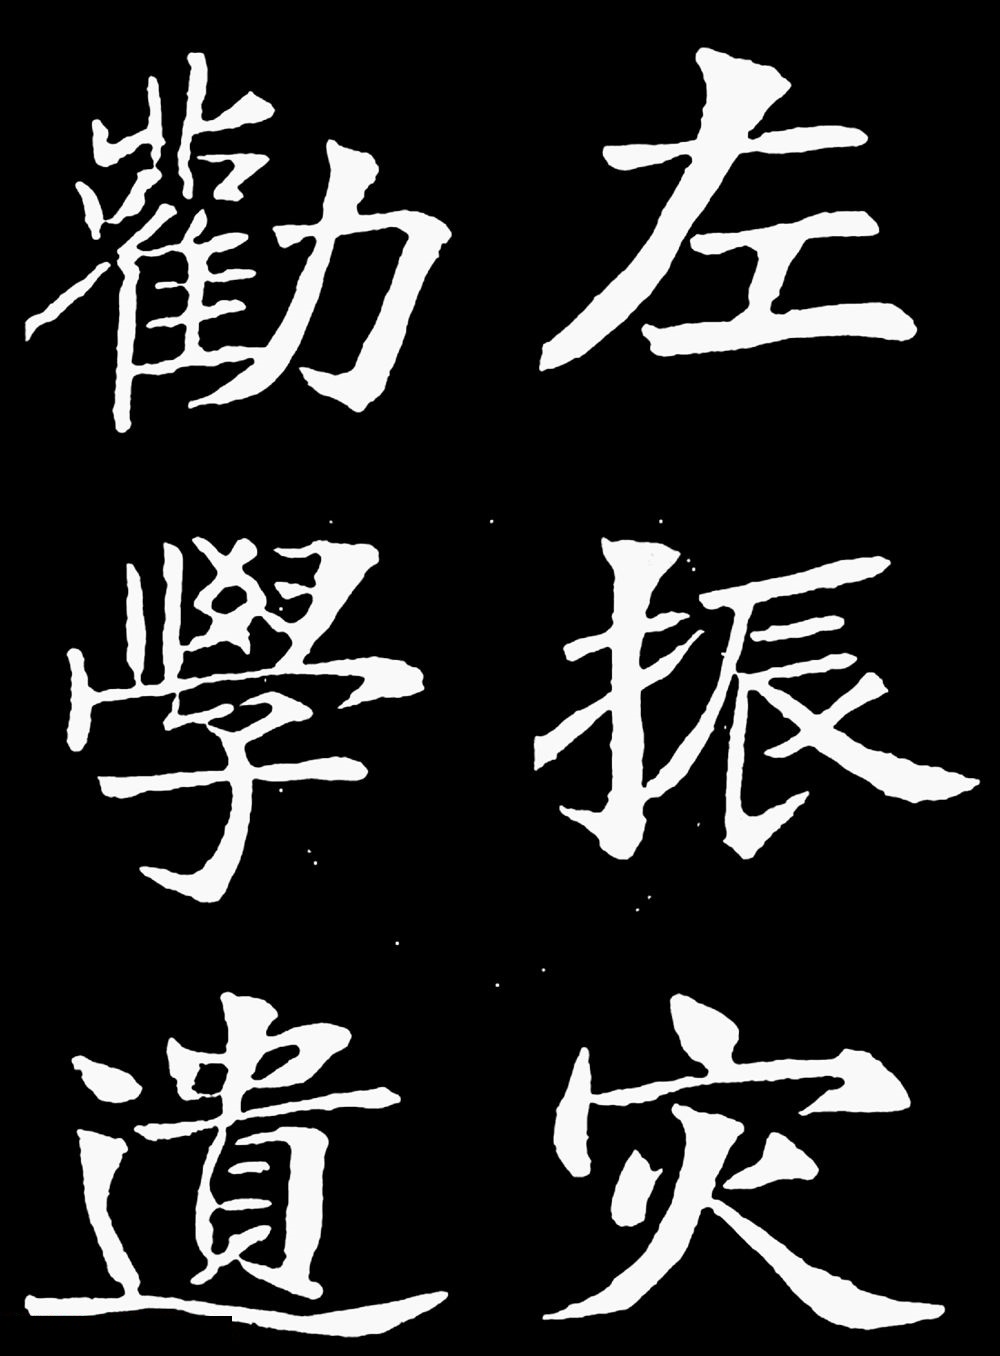 左振灾
勸學遺